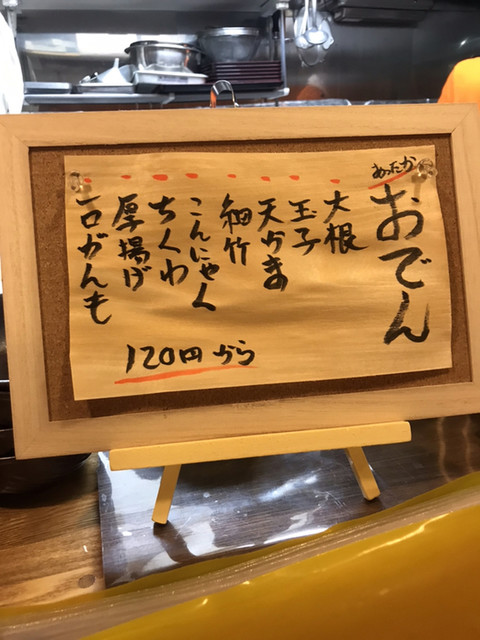 あったか
おでん
大根
玉子
天かま
細竹
こんにゃく
ちくわ
厚揚げ
一口がんも
120円から